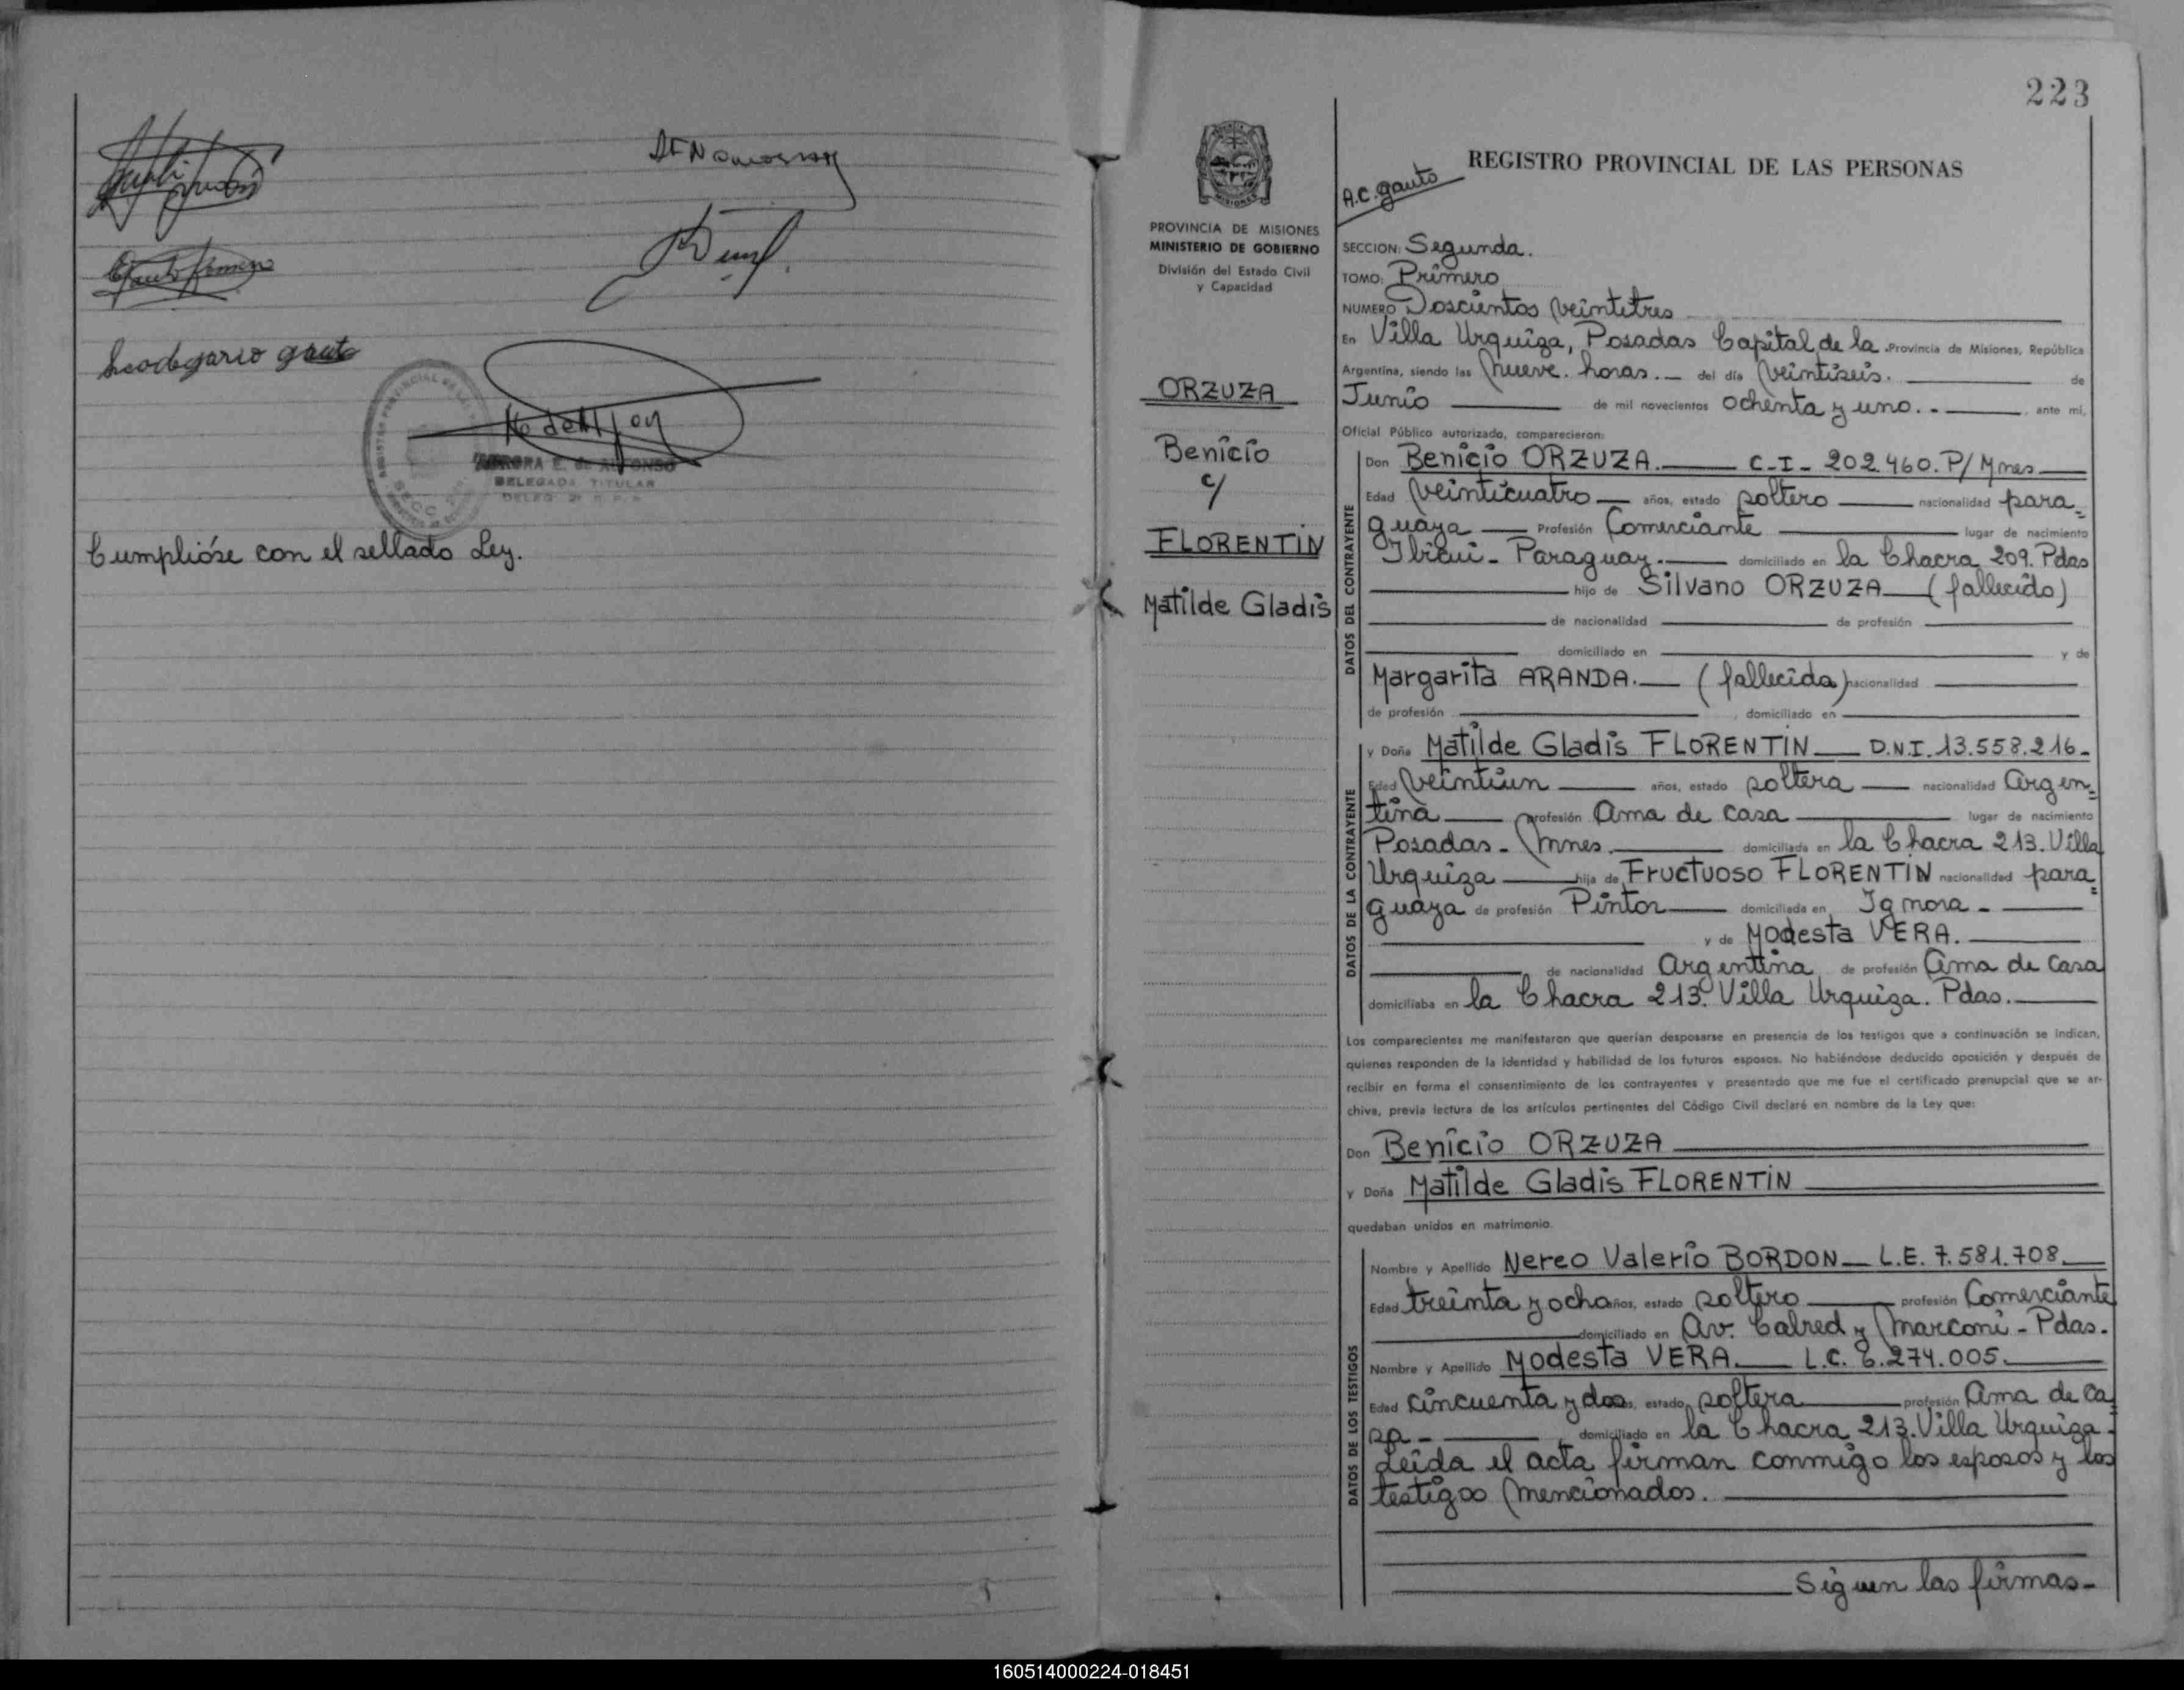 Leodegario gauto
REGISTRO PROVINCIAL DE LAS PERSONAS
SECC. 2da.
AURORA E. de ALFONSO
DELEGADA TITULAR
DELEG. 2ª R. P. P.
Cumplióse con el sellado Ley.
223
PROVINCIA DE MISIONES
MINISTERIO DE GOBIERNO
División del Estado Civil
y Capacidad
ORZUZA
Benicio
c/
FLORENTIN
Matilde Gladis
REGISTRO PROVINCIAL DE LAS PERSONAS
A.C. gauto
SECCION: Segunda.
TOMO: Primero
NUMERO Doscientos veintitres
En Villa Urquiza, Posadas Capital de la Provincia de Misiones, República
Argentina, siendo las nueve. horas. del día veintiseis. de
Junio de mil novecientos ochenta y uno. ante mi,
Oficial Público autorizado, comparecieron:
DATOS DEL CONTRAYENTE
Don Benicio ORZUZA. C-I- 202.460. P/Mnes
Edad veinticuatro años, estado soltero nacionalidad para=
guaya Profesión Comerciante lugar de nacimiento
Ibicui - Paraguay. domiciliado en la Chacra 209. Pdas
hijo de Silvano ORZUZA (fallecido)
de nacionalidad de profesión
domiciliado en y de
Margarita ARANDA. (fallecida) nacionalidad
de profesión , domiciliado en
DATOS DE LA CONTRAYENTE
y Doña Matilde Gladis FLORENTIN D.N.I. 13.558.216-
Edad veintiun años, estado soltera nacionalidad argen=
tina profesión ama de casa lugar de nacimiento
Posadas - Mnes. domiciliada en la Chacra 213. Villa
Urquiza hija de Fructuoso FLORENTIN nacionalidad para=
guaya de profesión Pintor domiciliada en Ignora -
y de Modesta VERA.
de nacionalidad argentina de profesión ama de casa
domiciliaba en la Chacra 213. Villa Urquiza. Pdas.
Los comparecientes me manifestaron que querían desposarse en presencia de los testigos que a continuación se indican,
quienes responden de la identidad y habilidad de los futuros esposos. No habiéndose deducido oposición y después de
recibir en forma el consentimiento de los contrayentes y presentado que me fue el certificado prenupcial que se ar-
chiva, previa lectura de los artículos pertinentes del Código Civil declaré en nombre de la Ley que:
Don Benicio ORZUZA
y Doña Matilde Gladis FLORENTIN
quedaban unidos en matrimonio.
DATOS DE LOS TESTIGOS
Nombre y Apellido Nereo Valerio BORDON L.E. 7.581.708.
Edad treinta y ocho años, estado soltero profesión Comerciante
domiciliado en av. Cabred y Marconi - Pdas.
Nombre y Apellido Modesta VERA. L.C. 6.274.005.
Edad cincuenta y dos años, estado soltera profesión ama de ca
sa - domiciliado en la Chacra 213. Villa Urquiza -
Leida el acta firman conmigo los esposos y los
testigos mencionados.
Siguen las firmas-
160514000224-018451